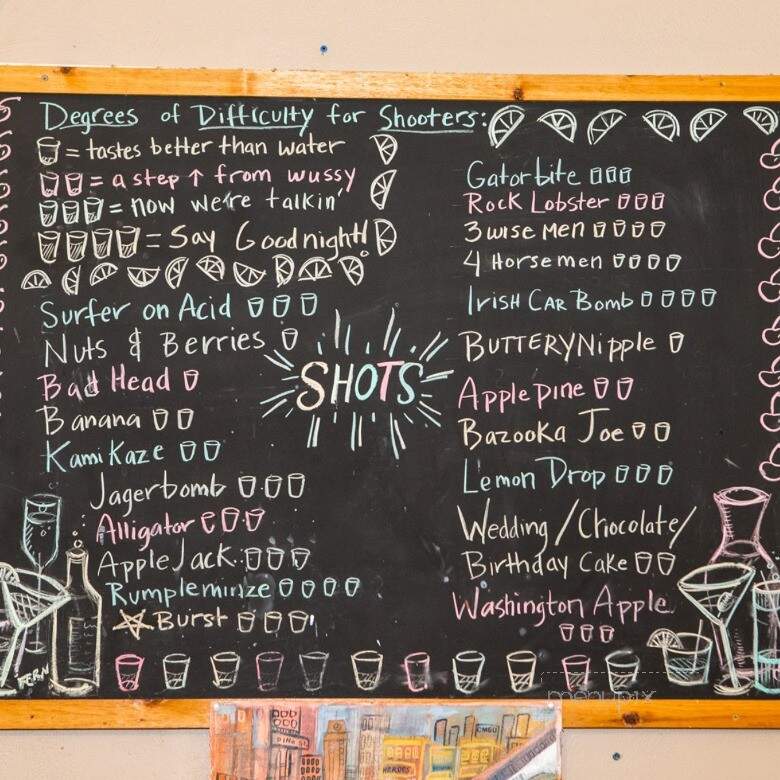 Degrees of Difficulty for Shooters:
= tastes better than water
= a step ↑ from wussy
= now we're talkin'
= Say Goodnight!
Surfer on Acid
Nuts & Berries
Bad Head
Banana
Kamikaze
Jagerbomb
Alligator
Apple Jack
Rumpleminze
Burst
SHOTS
Gatorbite
Rock Lobster
3 wise Men
4 Horsemen
Irish Car Bomb
BUTTERY Nipple
Apple pine
Bazooka Joe
Lemon Drop
Wedding / Chocolate /
Birthday Cake
Washington Apple
FERN
menupix
DINA ST.
HEROES
CMGU